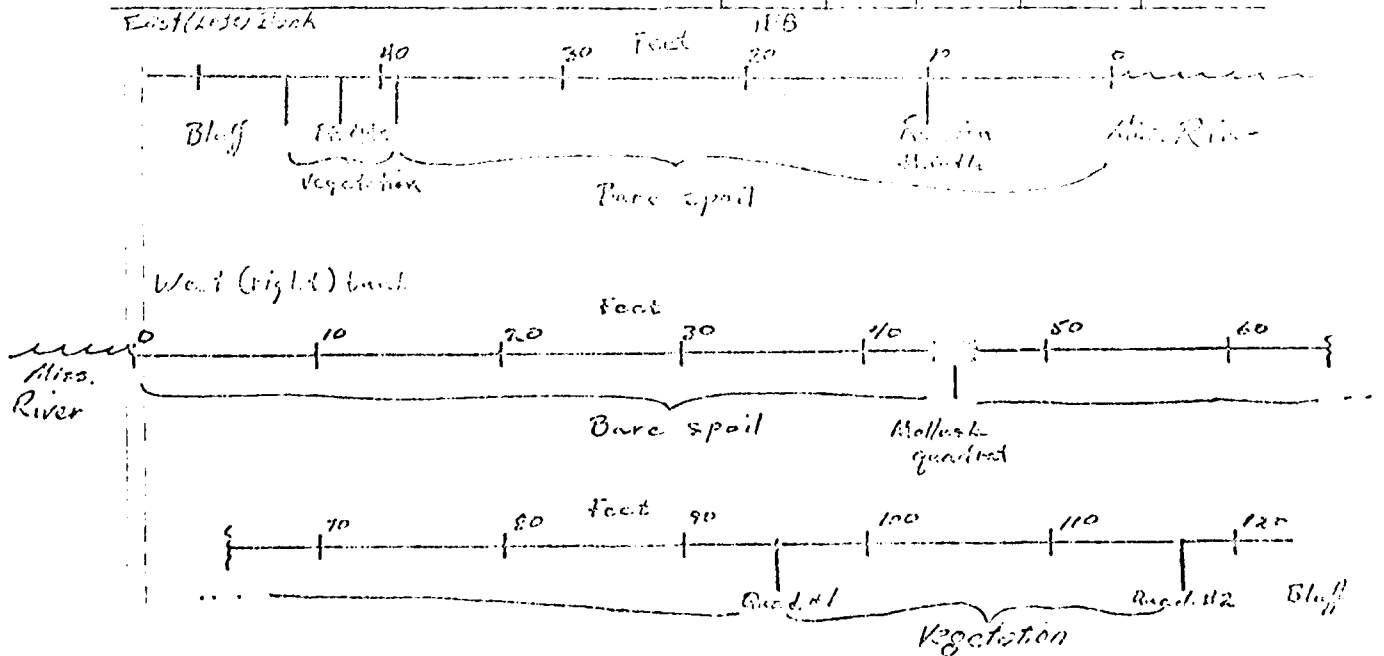 East Bank
Feet
40 30 20 10 0
Bluff
River
Vegetation
Bare spoil
West (right) bank
Feet
0 10 20 30 40 50 60
Miss.
River
Bare spoil
Mollusk
quadrat
...
Feet
70 80 90 100 110 120
... Quad. #1 Quad. #2 Bluff
Vegetation